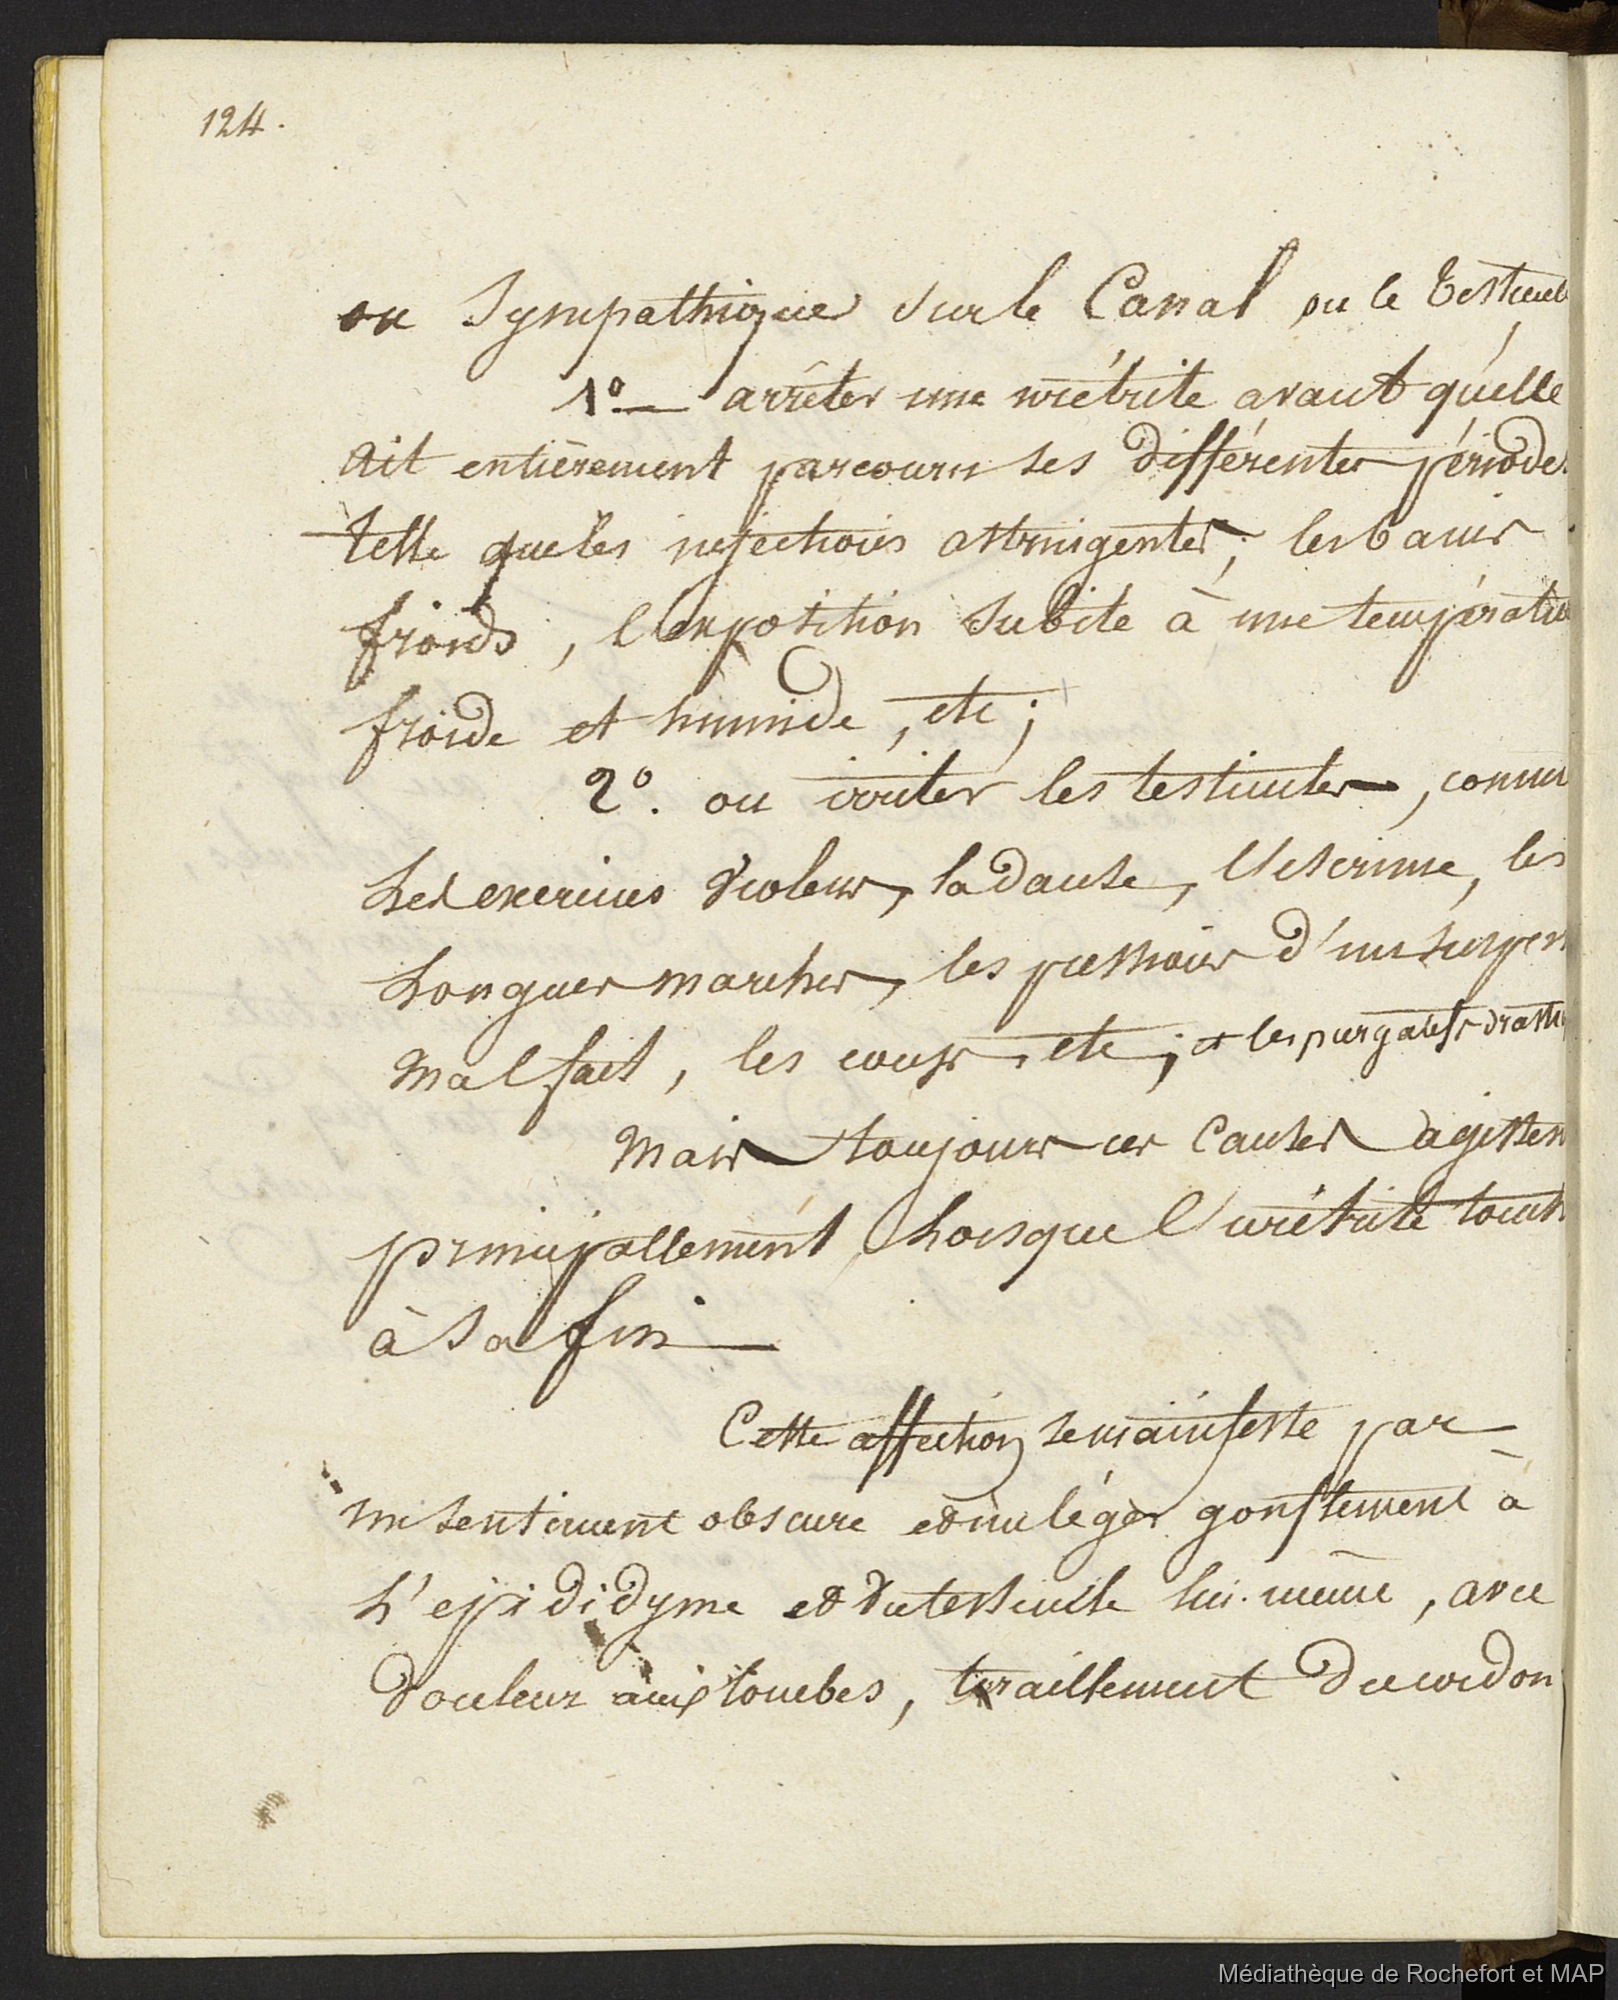 124.
ou Sympathique sur le Canal ou le Testicule
1º — arrêter une urétrite avant qu'elle
ait entièrement parcouru ses différentes périodes
telle que les injections astringentes, les bains
froids, l'exposition subite à une températu
froide et humide, etc;
2º. ou irriter les testicules, comme
Les exercices violens, la danse, l'escrime, les
Longues marches, les pressions d'un suspen
mal fait, les coups, etc; et les purgatifs drasti
Mais toujours ces Causes agissen
principallement Lorsque l'urétrite touch
à sa fin —
Cette affection se mainfeste par
un sentiment obscure et un léger gonflement à
L'epididyme et du testicule lui-même, avec
douleur aux lombes, tiraillement du cordon
Médiathèque de Rochefort et MAP